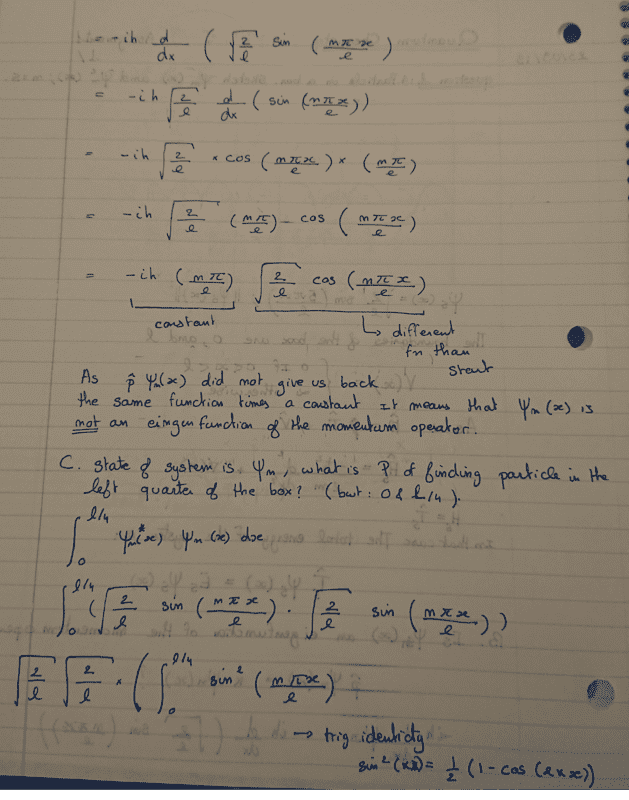 = -ih d/dx ( √(2/l) sin (mπx/l) )
= -ih √(2/l) d/dx ( sin (mπx/l) )
= -ih √(2/l) × cos (mπx/l) × (mπ/l)
= -ih √(2/l) (mπ/l) - cos (mπx/l)
= -ih (mπ/l) √(2/l) cos (mπx/l)
constant ↳ different
fn than
start
As p̂ Ψm(x) did not give us back
the same function times a constant it means that Ψm(x) is
not an eingen function of the momentum operator.
C. state of system is Ψm, what is P of finding particle in the
left quarter of the box? (bwt: 0 & l/4).
∫₀^(l/4) Ψm*(x) Ψm(x) dx
∫₀^(l/4) ( √(2/l) sin (mπx/l) . √(2/l) sin (mπx/l) )
√(2/l) √(2/l) × ( ∫₀^(l/4) sin² (mπx/l)
→ trig identidy
= ½ (1 - cos (2xx))